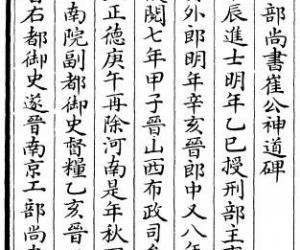 部尚書崔公神道碑
辰進士明年乙巳授刑部主
外郎明年辛亥晉郎中又八年
閱七年甲子晉山西布政司
正德庚午再除河南是年秋
南院副都御史督糧乙亥晉
右都御史遂晉南京工部尚